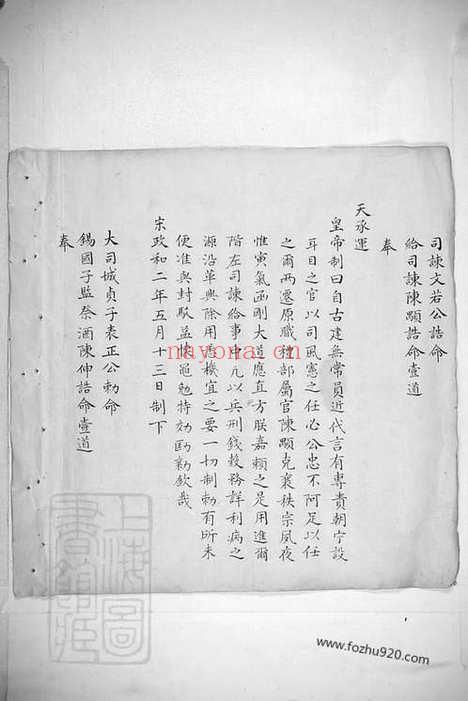 司諫文若公誥命
給司諫陳顯誥命壹道
奉
天承運
皇帝制曰自古建無常員近代言有專責朝宁設
耳目之官以司風憲之任必公忠不阿足以任
之爾兩遷原職種部屬官陳顯克襄秩宗夙夜
惟寅氣函剛大道應直方朕嘉賴之是用進爾
階左司諫給事中凢以兵刑錢穀務詳利病之
源沿革興除用悉機宜之要一切制勅有所未
便准與封駁益懷黽勉特劾勷欽哉
宋政和二年五月十三日制下
大司城貞子表正公勅命
錫國子監祭酒陳仲誥命壹道
奉
nayona.cn
上海圖書館藏
www.fozhu920.com